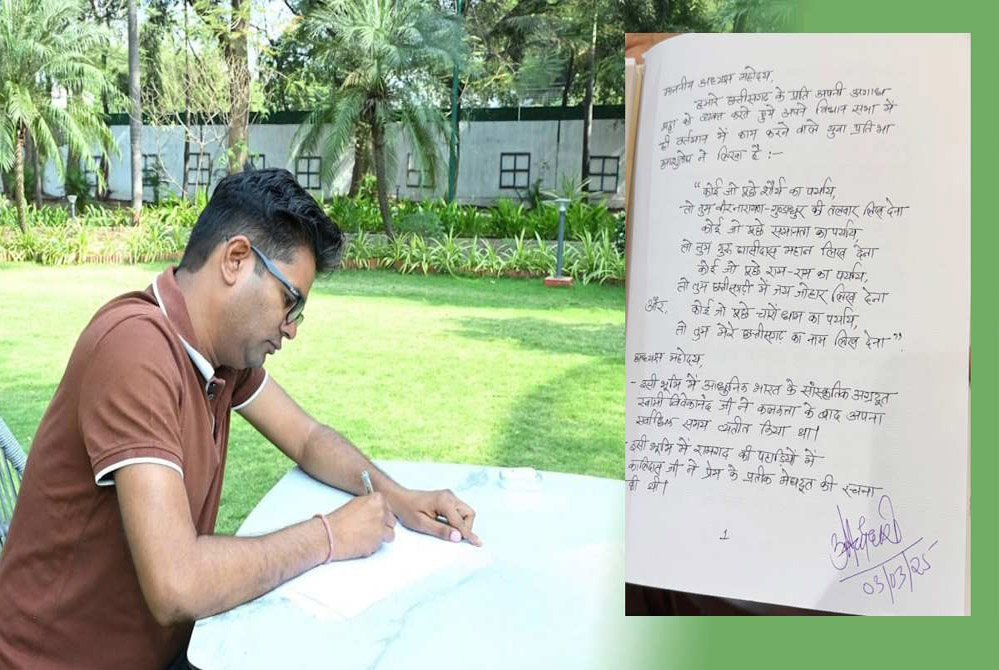 माननीय अध्यक्ष महोदय,
हमारे छत्तीसगढ़ के प्रति अपनी अगाध
श्रद्धा को व्यक्त करते हुये अपने विधान सभा में
ही वर्तमान में काम करने वाले युवा प्रतिभा
ने लिखा है :-
“कोई जो पूछे शौर्य का पर्याय,
तो तुम वीरनारायण-गुण्डाधुर की तलवार लिख देना
कोई जो पूछे समानता का पर्याय
तो तुम गुरु घासीदास महान लिख देना
कोई जो पूछे राम-राम का पर्याय,
तो तुम छत्तीसगढ़ी में जय जोहार लिख देना
और, कोई जो पूछे चारों धाम का पर्याय,
तो तुम मेरे छत्तीसगढ़ का नाम लिख देना”
अध्यक्ष महोदय,
- इसी भूमि में आधुनिक भारत के सांस्कृतिक अग्रदूत
स्वामी विवेकानंद जी ने कलकत्ता के बाद अपना
सर्वाधिक समय व्यतीत किया था।
- इसी भूमि में रामगढ़ की पहाड़ियों में
कालिदास जी ने प्रेम के प्रतीक मेघदूत की रचना
की थी।
1
03/03/25